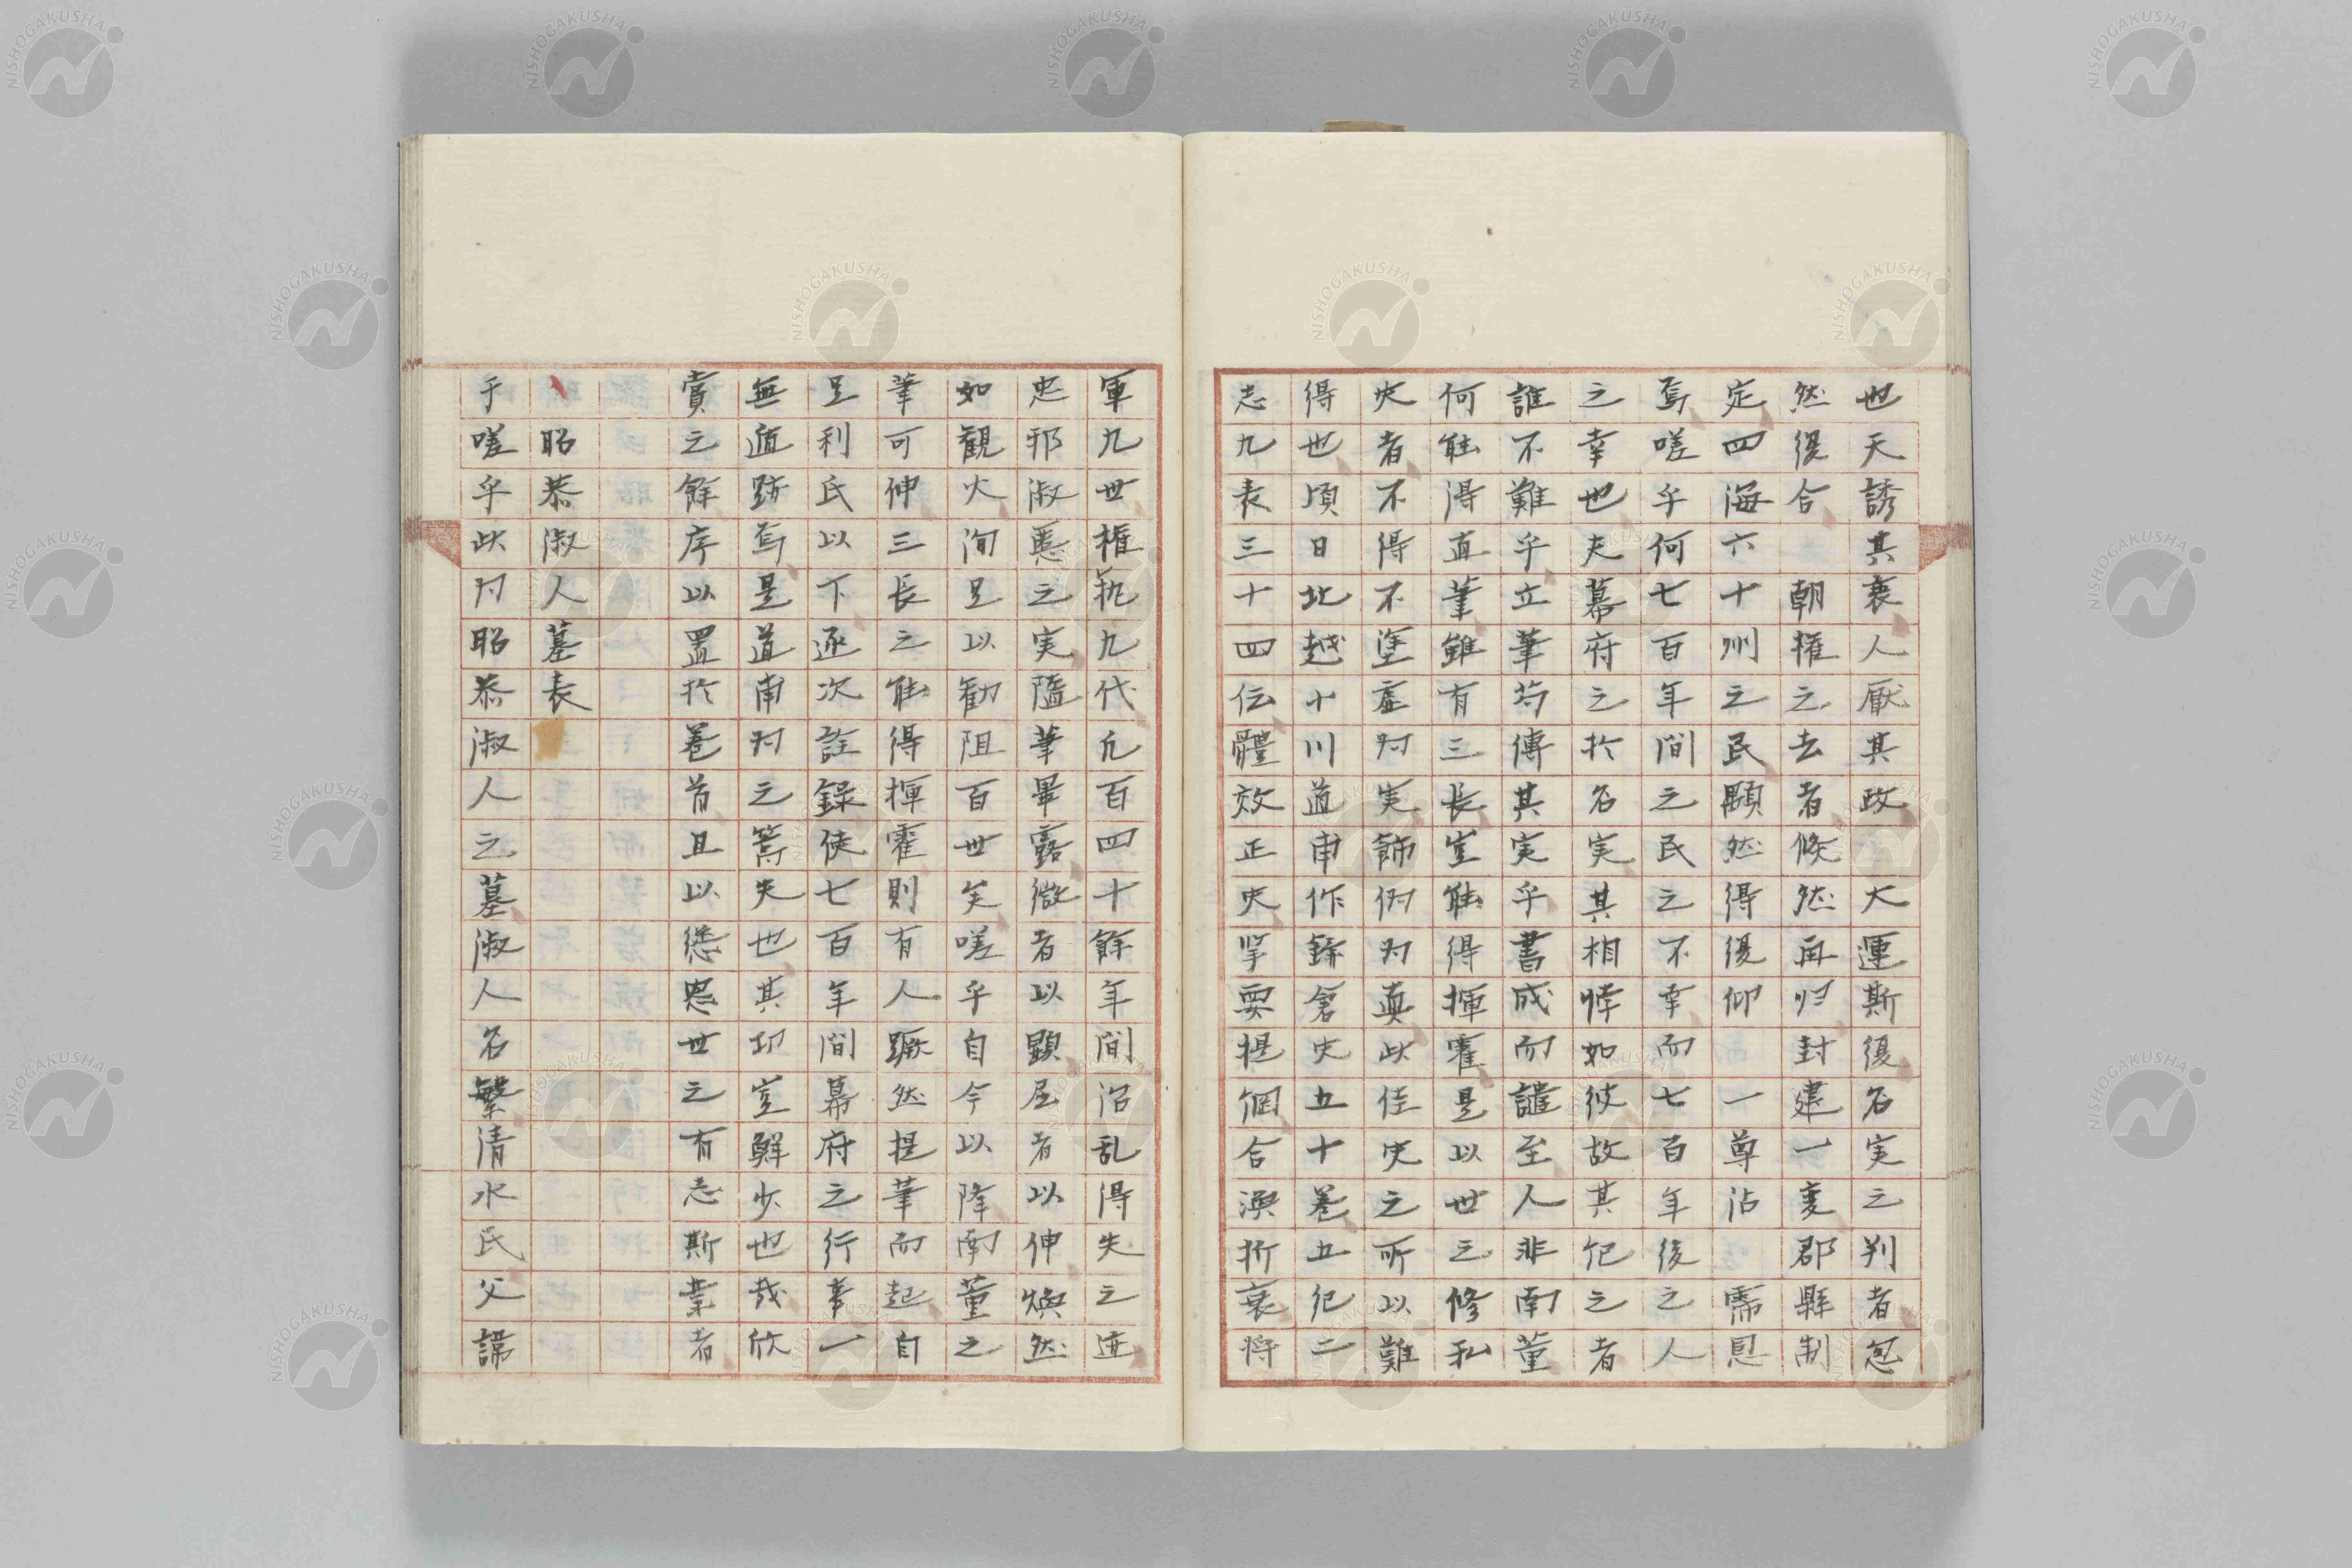 也天誘其衷人厭其政　大運斯復名実之判者忽
然復合　朝権之去者倏然再帰封建一変郡縣制
定四海六十州之民顒然得復仰　一尊沾　霈恩
焉嗟乎何七百年間之民之不幸而七百年後之人
之幸也夫幕府之於名実其相悖如彼故其紀之者
誰不難乎立筆苟傳其実乎書成而譴至人非南董
何能得直筆雖有三長豈能得揮霍是以世之修私
史者不得不塗虚為実飾偽為真此佳史之所以難
得也頃日北越十川道甫作錄倉史五十巻五紀二
志九表三十四伝體效正史挈要提綱合渙折衷将
軍九世権執九代凡百四十餘年間治乱得失之迹
忠邪淑慝之実隱筆畢露微者以顕屈者以伸煥然
如観火洵足以勧阻百世矣嗟乎自今以降南董之
筆可伸三長之能得揮霍則有人蹶然提筆而起自
足利氏以下逐次詮錄使七百年間幕府之行事一
無遁跡焉是道甫為之嚆矢也其功豈鮮少也哉欣
賞之餘序以置於巻首且以慫慂世之有志斯業者
昭恭淑人墓表
于嗟乎此為昭恭淑人之墓淑人名繁清水氏父諱
NISHOGAKUSHA